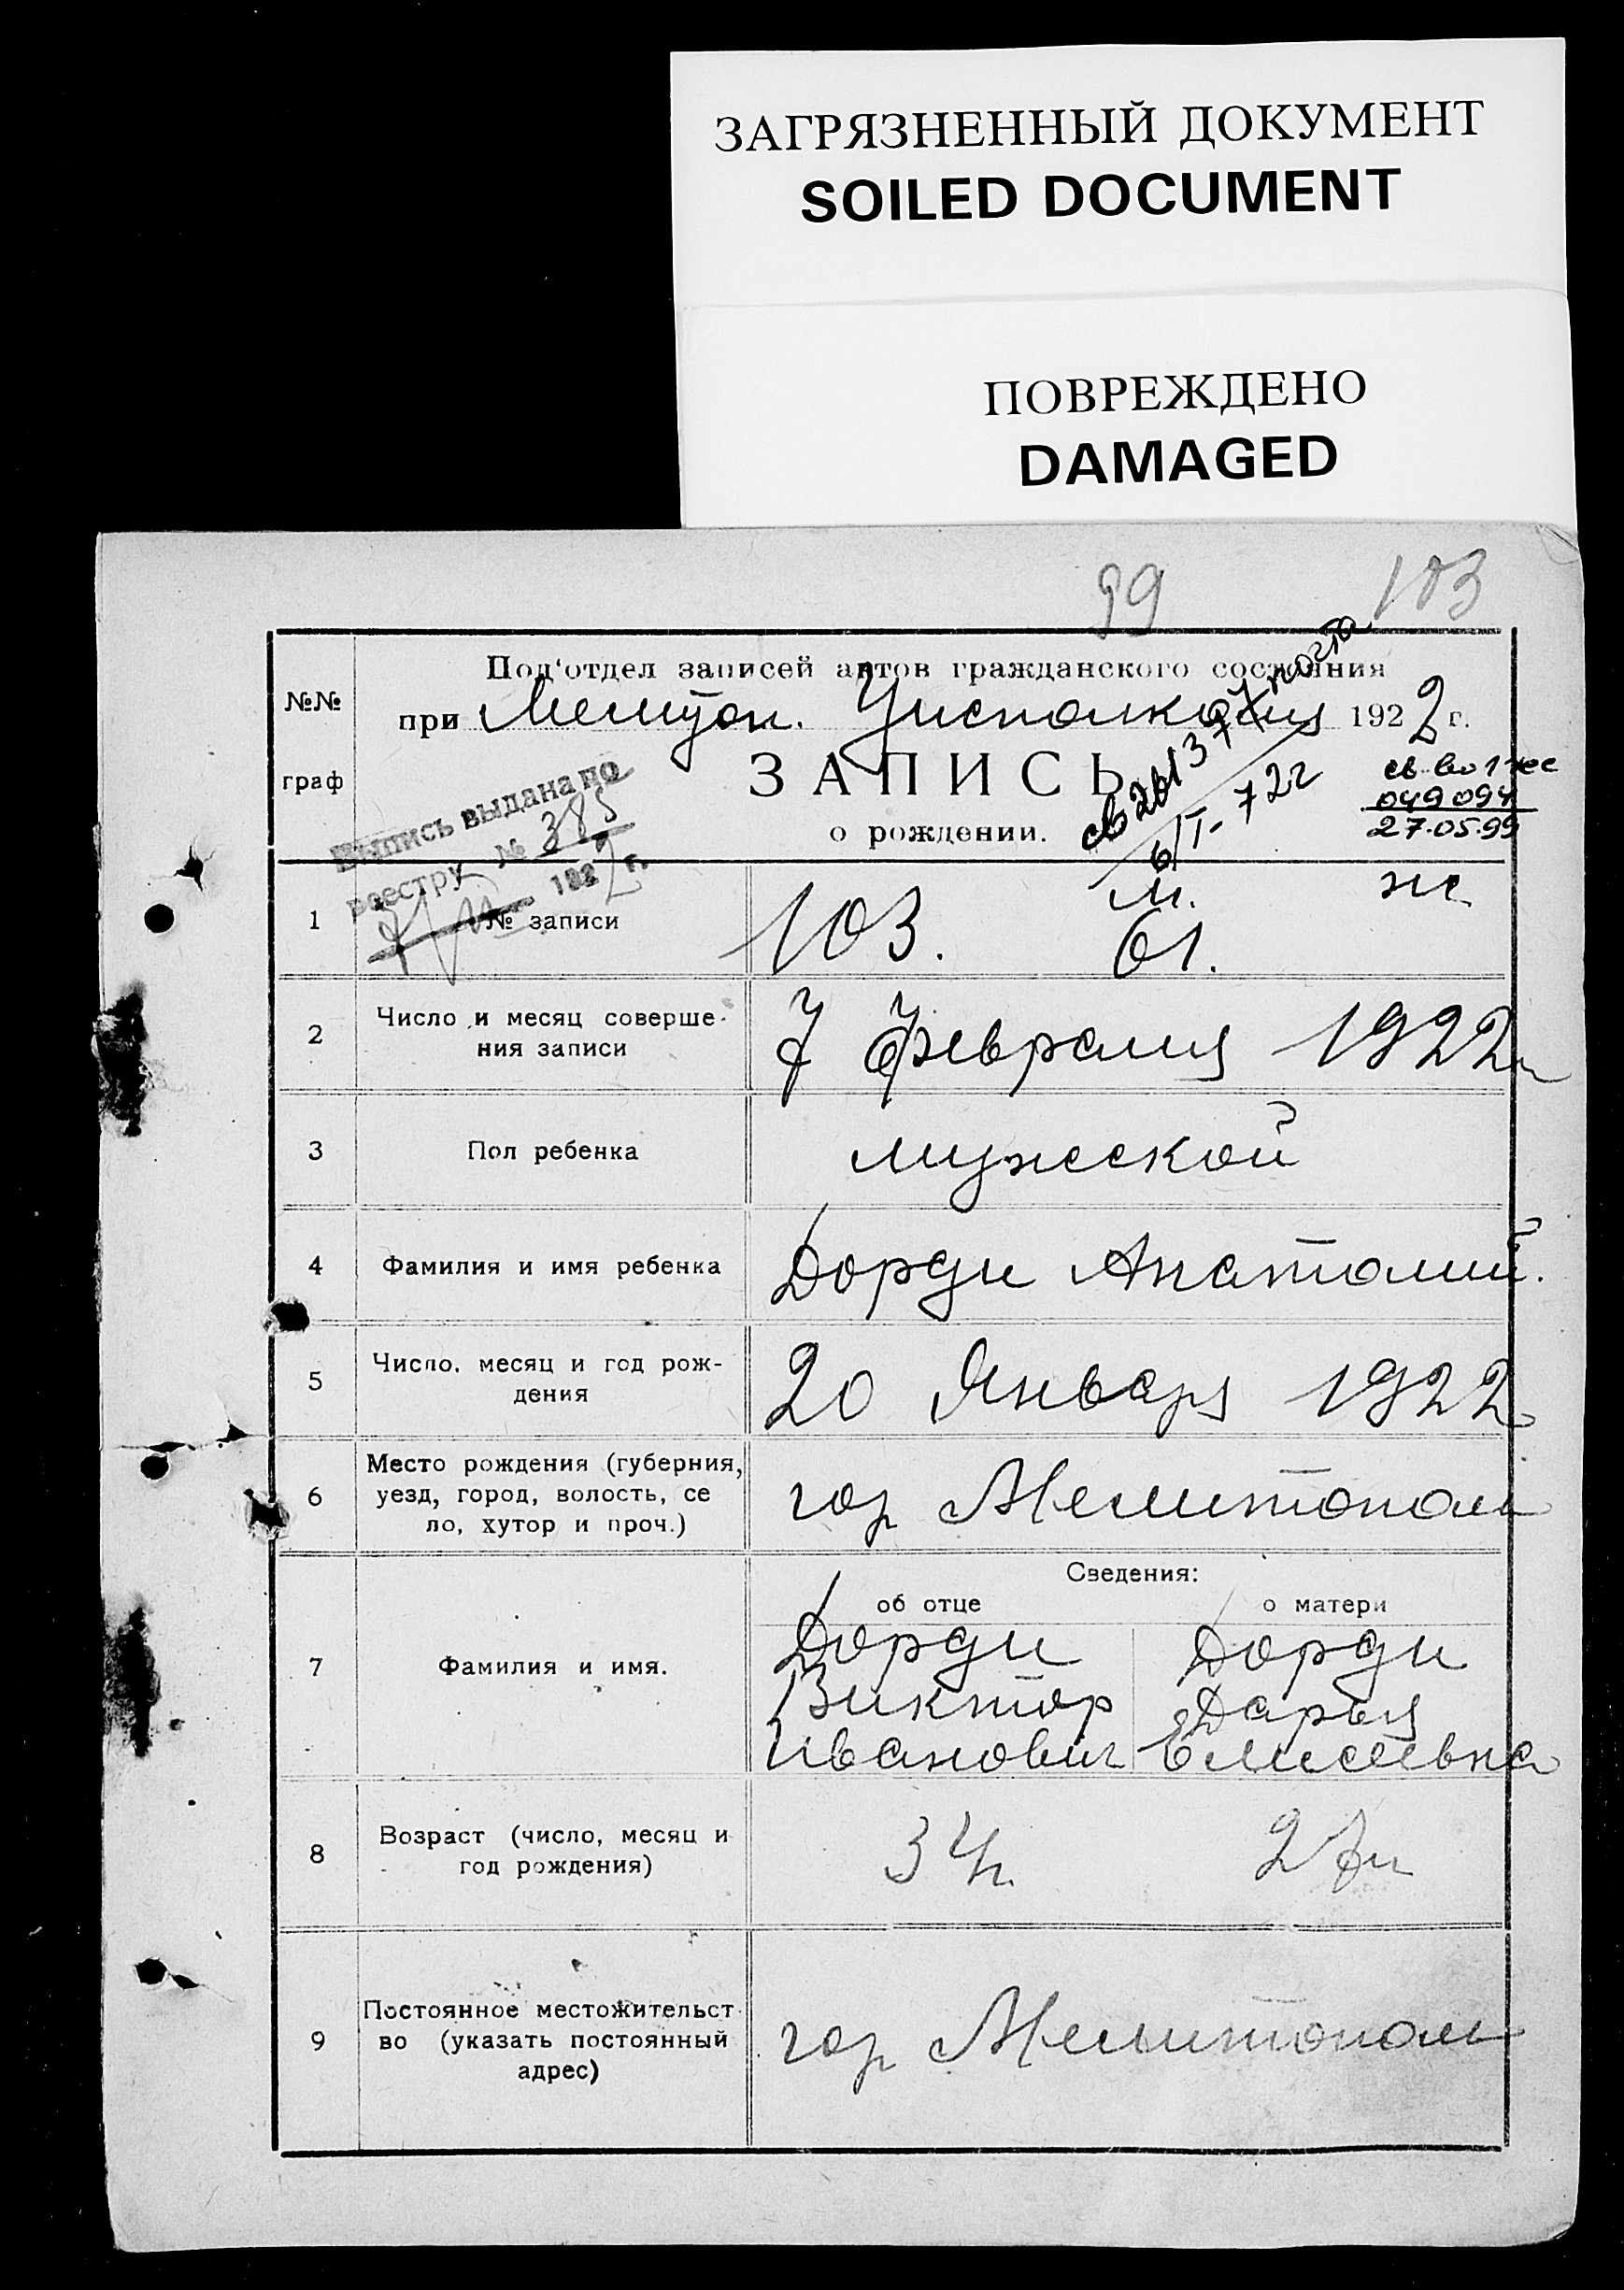 ЗАГРЯЗНЕННЫЙ ДОКУМЕНТ
SOILED DOCUMENT
ПОВРЕЖДЕНО
DAMAGED
99 103
№№
граф
Под'отдел записей актов гражданского состояния
при Мелитоп. Уисполкоме 1922 г.
ЗАПИСЬ
о рождении.
Выпись выдана по
реестру № 385
1922 г.
6/I-72г
св-во 1 жс
049094
27.05.99
1 № записи 103. м. 61. ж
2 Число и месяц соверше-
ния записи
7 февраля 1922г
3 Пол ребенка мужеской
4 Фамилия и имя ребенка Дорди Анатолий.
5 Число, месяц и год рож-
дения
20 Января 1922
6 Место рождения (губерния,
уезд, город, волость, се
ло, хутор и проч.)
гор Мелитополь
Сведения:
об отце о матери
7 Фамилия и имя.
Дорди Дорди
Виктор Дарья
Иванович Елисеевна
8 Возраст (число, месяц и
год рождения)
34г. 27л
9 Постоянное местожительст-
во (указать постоянный
адрес)
гор Мелитополь